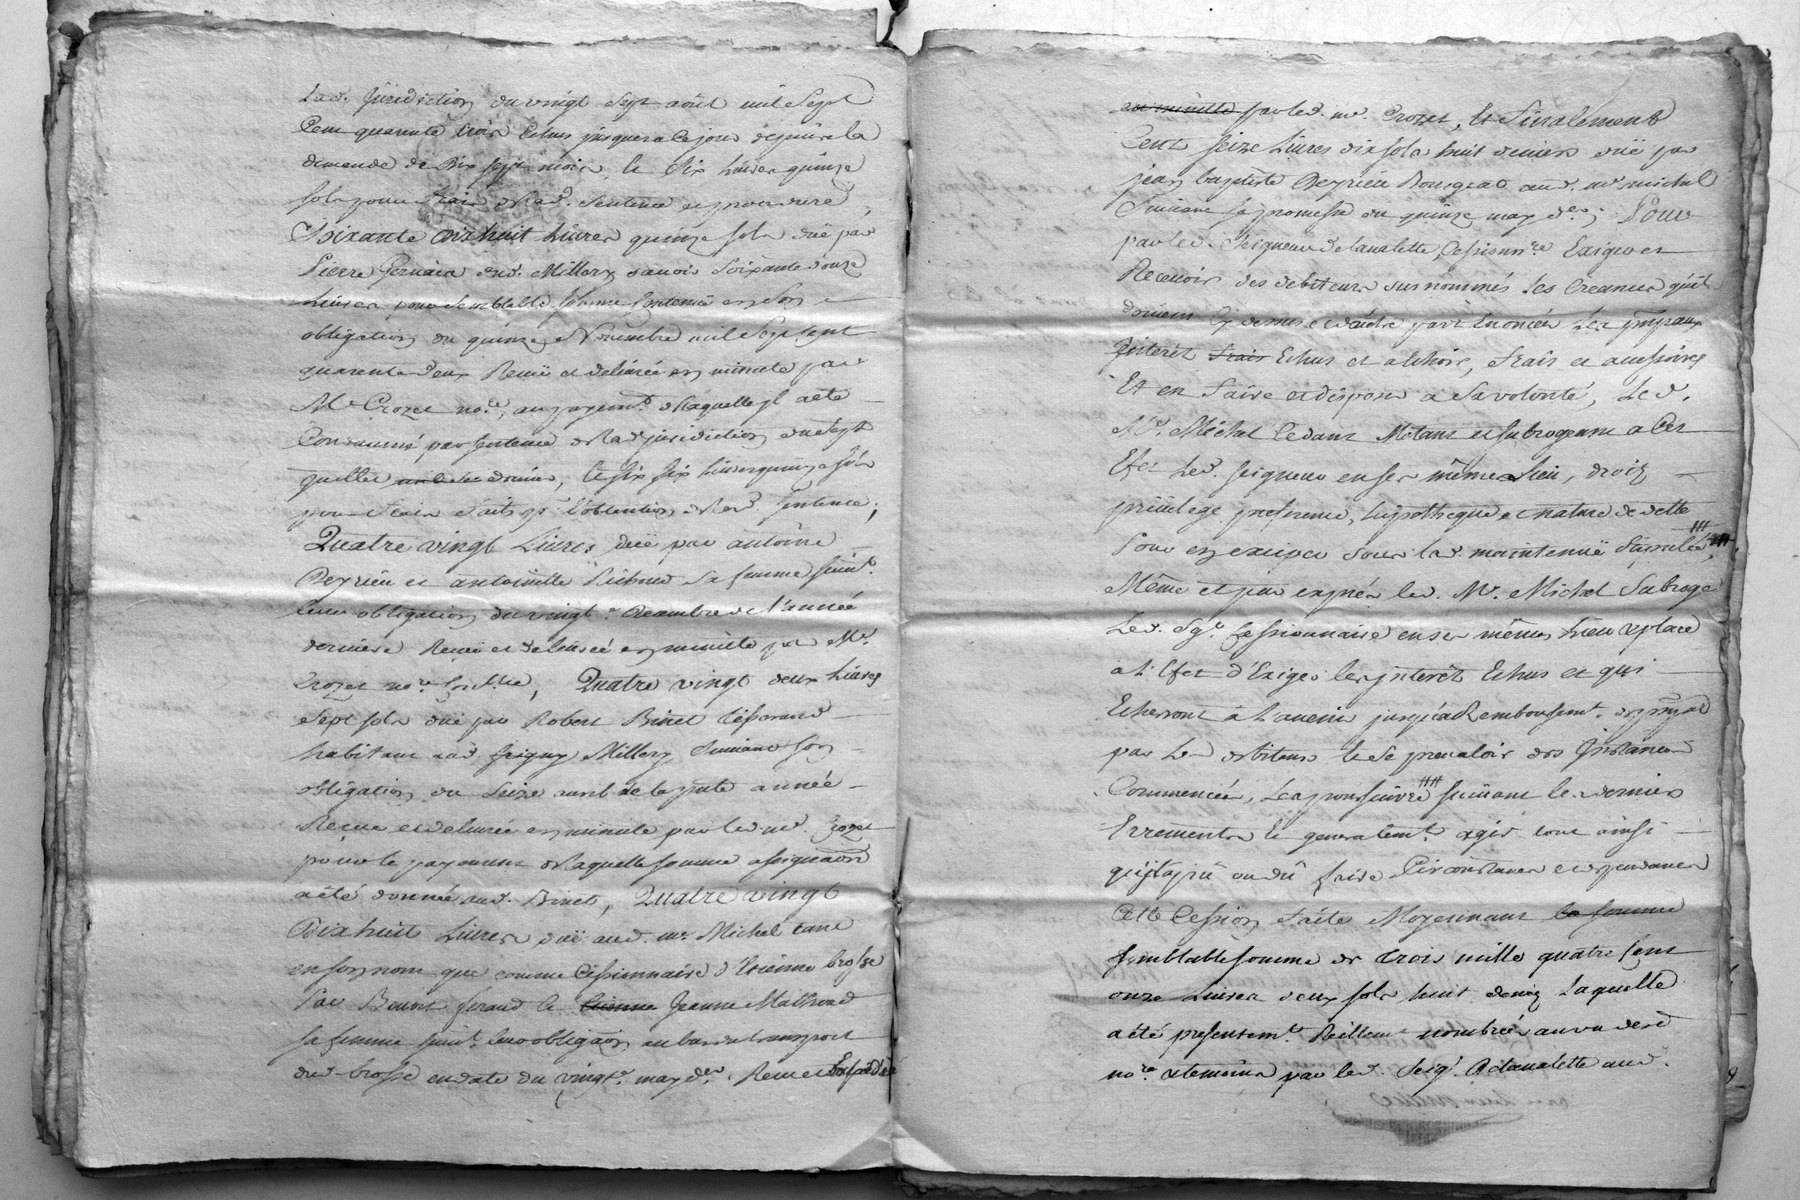 lad. Jurisdiction du vingt sept aout mil sept
Cent quarante trois Echus jusques a ce jour depuis la
demande de dix sept mois, et dix Livres quinze
sols pour frais de lad. Sentence et procedure,
Soixante dixhuit Livres quinze sols düe par
Pierre Gervais dud. Millery savoir Soixante douze
Livres pour semblable somme contenüe en son
obligation du quinze Novembre mil Sept cent
quarante deux Recüe et delivrée en minute par
Me Crozet nore, au payemt. de laquelle il a eté
Condamné par sentence de lad. jurisdiction du sept
juillet dernier, et six Livres quinze sols
pour frais faits pr. l'obtention de lad. sentence,
Quatre vingt Livres düe par antoine
Deyrieu et antoinette Pichoud sa femme suivt.
leur obligation du vingte. Decembre de l'année
derniere Recüe et delivrée en minute par Me.
Crozet nore , Quatre vingt deux Livres
Sept sols düe par Robert Binet tisserand
habitant aud. Millery Suivant son
obligation du Seize avril de la pnte année
Recüe et delivrée en minute par led. me. Crozet
pour le payement de laquelle somme assignaon
a été donnée aud. Binet, Quatre vingt
Dixhuit Livres düe aud. me. Michel tant
en son nom que comme Cessionnaire d'Etienne brosse
Par Benoit feraud et Etienne Jeanne Mathoud
sa femme suivt. leur obligaon au bas du transport
dud. brosse en date du vingte. may der. Recüe
en minutte par led. me. Crozet, et finalement
Cent seize Livres dix sols huit deniers düe par
jean baptiste Deyrieu Bourgeat aud. me michel
Suivant sa promesse du quinze may der; Pour
par led. Seigneur delavalette Cessionnre. Exiger et
Recevoir des debiteurs susnommés les Creances qu'ils
doivent cy dessus et d'autre part Enoncées Les ppaux
Interêt frais Echus et a echoir, frais et accessoires
Et en faire et disposer a sa volonté, Led.
Me. Michel Cedant Metant et subrogeant a Cet
Efet Led. Seigneur en ses même Lieu, droit
privilege preference, hypotheque et nature de dette
Pour en exciper sous lad. maintenüe stipulée,
Même et par exprès led. Me. Michel Subroge
Led. Sgr. Cessionnaire en ses mêmes Lieu & place
a l'Efet d'Exiger les interêts Echus et qui
Echerront à L'avenir jusqu'au Remboursemt. du ppal
par Les debiteurs et se prevaloir des Instances
Commencées, les poursuivre suivant les derniers
Erremens et generalemt. agir tout ainsi
qu'il a pû ou dû faire Circonstances et dependances
Cette Cession faite Moyennant la somme
semblable somme de Trois mille quatre Cent
onze Livres deux sols huit deniers Laquelle
a été presentemt. Réellemt. nombrée au vu desd.
nore. & temoins par led. Seigr. Delavalette aud.